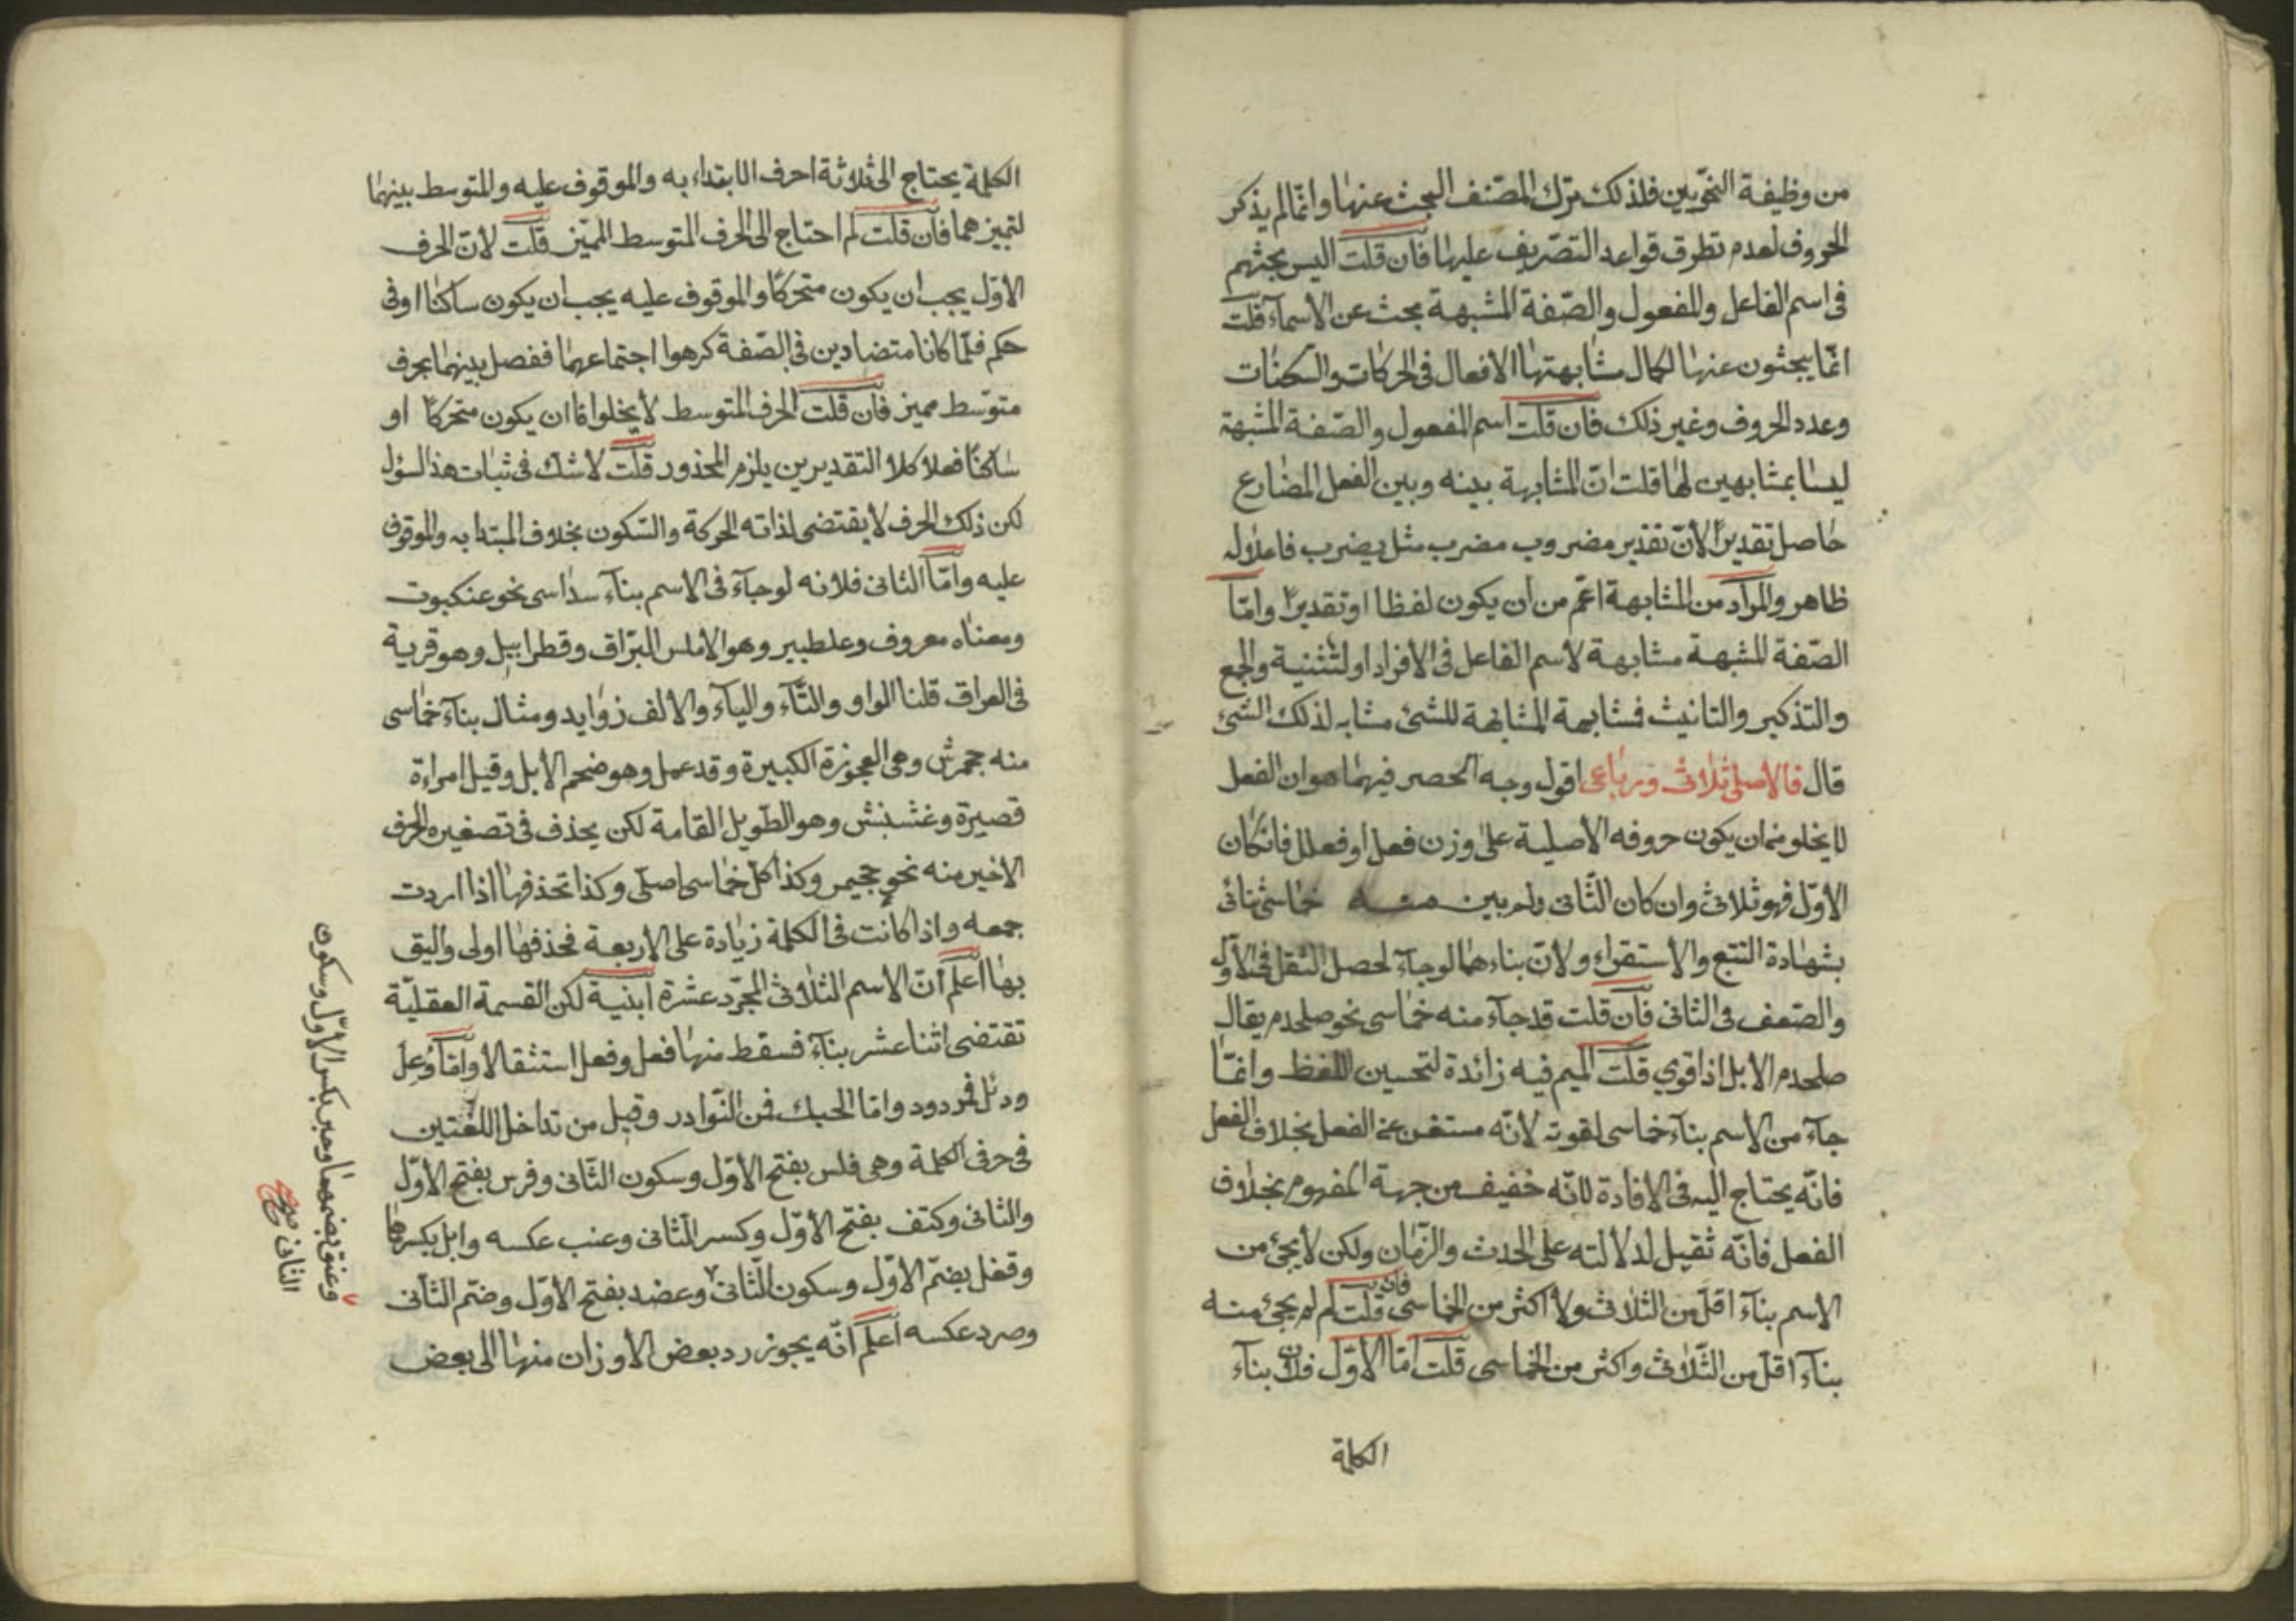 من وظيفة النحويين فلذلك ترك المصنف البحث عنها وانما لم يذكر
الحروف لعدم تطرق قواعد التصريف عليها فان قلت اليس بحثهم
فى اسم الفاعل والمفعول والصفة المشبهة بحث عن الاسمآء قلت
انما يبحثون عنها لكمال مشابهتها الافعال فى الحركات والسكنات
وعدد الحروف وغير ذلك فان قلت اسم المفعول والصفة المشبهة
ليسا بمشابهين لها قلت ان المشابهة بينه وبين الفعل المضارع
حاصل تقديرا لان تقدير مضروب مضرب مثل يضرب فاعلاله
ظاهر والمراد من المشابهة اعم من ان يكون لفظا او تقديرا وامّا
الصفة المشبهة مشابهة لاسم الفاعل فى الافراد او لتثنية والجمع
والتذكير والتانيث فمشابهة المشابهة للشئ مشابه لذلك الشئ
قال فالاصلى ثلاثى ورباعى اقول وجه الحصر فيهما هو ان الفعل
لا يخلو من ان يكون حروفه الاصلية على وزن فعل او فعلل فان كان
الاوّل فهو ثلاثى وان كان الثّانى ولم يبين منه خماسى ثنائى
بشهادة التتبع والاستقراء ولان بناءهما لوجآء لحصل الثقل فى الاوّل
والضعف فى الثانى فان قلت قد جآء منه خماسى نحو صلخدم يقال
صلخدم الابل اذا قوي قلت الميم فيه زائدة لتحسين اللفظ وانمّا
جآء من الاسم بناء خماسى لقوته لانّه مستغن عن الفعل بخلاف الفعل
فانّه يحتاج اليه فى الافادة لانّه خفيف من جهة المفهوم بخلاف
الفعل فانّه ثقيل لدلالته على الحدث والزمان ولكن لا يجئ من
الاسم بناء اقل من الثلاثى ولا اكثر من الخماسى فان قلت لم لم يجئ منه
بناء اقل من الثّلاثى واكثر من الخماسى قلت امّا الاوّل فلان بناء
الكلمة
الكلمة يحتاج الى ثلاثة احرف الابتداء به والموقوف عليه والمتوسط بينهما
لتميزهما فان قلت لم احتاج الى الحرف المتوسط المميّز قلت لانّ الحرف
الاوّل يجب ان يكون متحركا والموقوف عليه يجب ان يكون ساكنا او فى
حكم فلمّا كانا متضادين فى الصّفة كرهوا اجتماعهما ففصل بينهما بحرف
متوسّط مميز فان قلت الحرف المتوسط لا يخلوا امّا ان يكون متحركا او
ساكنا فعلا كلا التقديرين يلزم المحذور قلت لا شك فى ثبات هذا السؤل
لكن ذلك الحرف لا يقتضى لذاته الحركة والسّكون بخلاف المبتدا به والموقوف
عليه وامّا الثانى فلانه لو جآء فى الاسم بنآء سداسى نحو عنكبوت
ومعناه معروف وعلطبير وهو الاملس البرّاق وقطرابيل وهو قرية
فى العراق قلنا الواو والتّآء واليآء والالف زوايد ومثال بنآء خماسى
منه جحمرش وهى العجوزة الكبيرة وقذعمل وهو ضخم الابل وقيل امراءة
قصيرة وغشنش وهو الطّويل القامة لكن يحذف فى تصغيره الحرف
الاخير منه نحو جحيمر وكذا كلّ خماسى اصلى وكذا تحذفها اذا اردت
جمعه واذا كانت فى الكلمة زيادة على الاربعة فحذفها اولى واليق
بها اعلم انّ الاسم الثلاثى المجرّد عشرة ابنية لكن القسمة العقليّة
تقتضى اثنا عشر بنآء فسقط منها فعل وفعل استثقالا وامّا وُعِل
ودئل فمردود وامّا الحبك فمن النّوادر وقيل من تداخل اللغتين
فى حرفى الكلمة وهى فلس بفتح الاوّل وسكون الثّانى وفرس بفتح الاوّل
والثانى وكتف بفتح الاوّل وكسر الثانى وعنب عكسه وابل بكسرهما
وقفل بضمّ الاوّل وسكون الثّانى وعضد بفتح الاوّل وضمّ الثّانى
وصرد عكسه اعلم انّه يجوز رد بعض الاوزان منها الى بعض
وعنق بضمهما وحبر بكسر الاوّل وسكون
الثانى صح